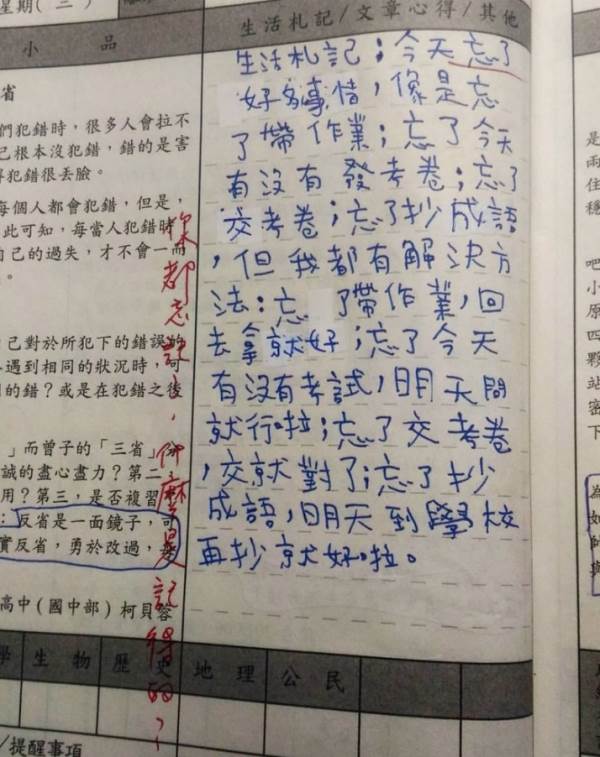 星期(二)
生活札記/文章心得/其他
小品
生活札記：今天忘了
好多事情，像是忘
了帶作業；忘了今天
有沒有發考卷；忘了
交考卷；忘了抄成語
，但我都有解決方
法：忘了帶作業，回
去拿就好；忘了今天
有沒有考試，明天問
就行啦；忘了交考卷
，交就對了；忘了抄
成語，明天到學校
再抄就好啦。
你都忘記，什麼是記得的？
省
們犯錯時，很多人會拉不
己根本沒犯錯，錯的是害
得犯錯很丟臉。
每個人都會犯錯，但是，
此可知，每當人犯錯時
自己的過失，才不會一而
。
己對於所犯下的錯誤的
遇到相同的狀況時，可
的錯？或是在犯錯之後
」而曾子的「三省」分
誠的盡心盡力？第二，
用？第三，是否複習
：反省是一面鏡子，可
實反省，勇於改過，
高中(國中部)柯貝容
學 生物 歷史 地理 公民
/提醒事項